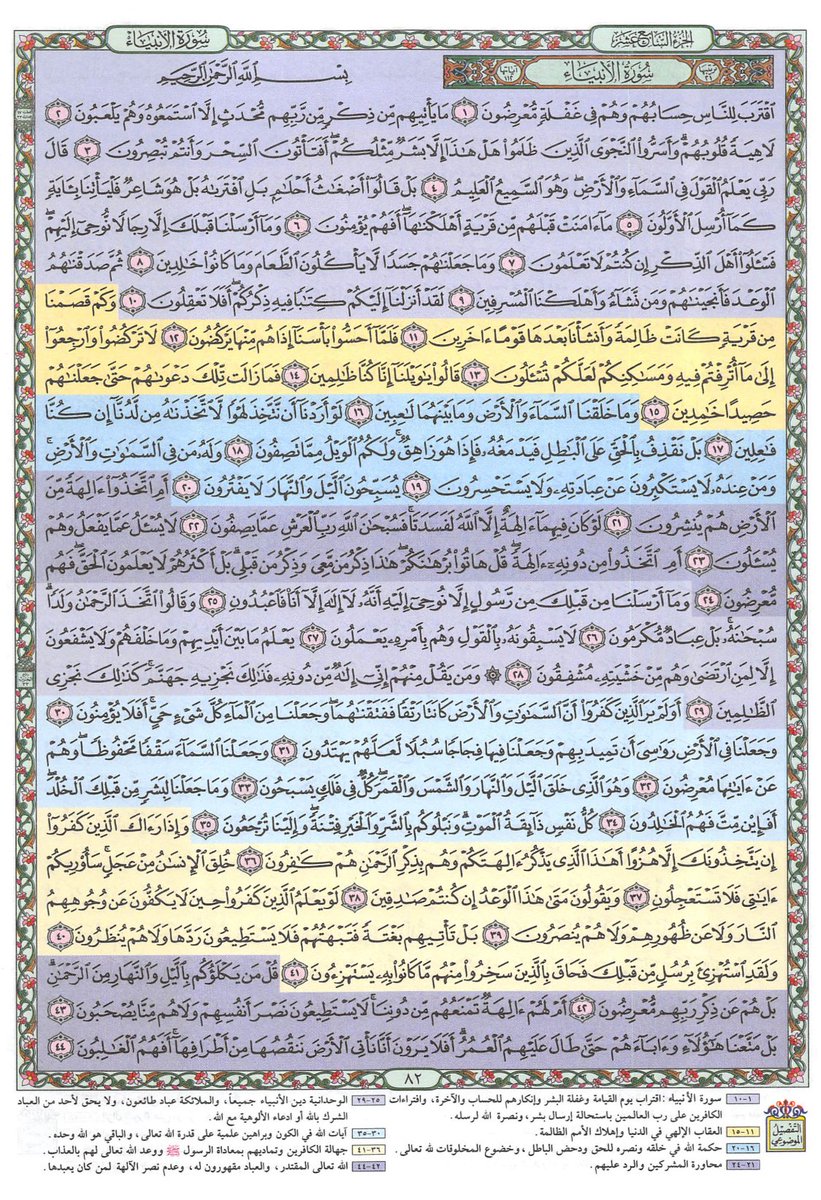 الجزء السابع عشر
سورة الأنبياء
ترتيبها ٢١ سورة الأنبياء آياتها ١١٢
بسم الله الرحمن الرحيم
ٱقۡتَرَبَ لِلنَّاسِ حِسَابُهُمۡ وَهُمۡ فِي غَفۡلَةٖ مُّعۡرِضُونَ ١ مَا يَأۡتِيهِم مِّن ذِكۡرٖ مِّن رَّبِّهِم مُّحۡدَثٍ إِلَّا ٱسۡتَمَعُوهُ وَهُمۡ يَلۡعَبُونَ ٢
لَاهِيَةٗ قُلُوبُهُمۡۗ وَأَسَرُّواْ ٱلنَّجۡوَى ٱلَّذِينَ ظَلَمُواْ هَلۡ هَٰذَآ إِلَّا بَشَرٞ مِّثۡلُكُمۡۖ أَفَتَأۡتُونَ ٱلسِّحۡرَ وَأَنتُمۡ تُبۡصِرُونَ ٣ قَالَ
رَبِّي يَعۡلَمُ ٱلۡقَوۡلَ فِي ٱلسَّمَآءِ وَٱلۡأَرۡضِۖ وَهُوَ ٱلسَّمِيعُ ٱلۡعَلِيمُ ٤ بَلۡ قَالُوٓاْ أَضۡغَٰثُ أَحۡلَٰمِۭ بَلِ ٱفۡتَرَىٰهُ بَلۡ هُوَ شَاعِرٞ فَلۡيَأۡتِنَا بِـَٔايَةٖ
كَمَآ أُرۡسِلَ ٱلۡأَوَّلُونَ ٥ مَآ ءَامَنَتۡ قَبۡلَهُم مِّن قَرۡيَةٍ أَهۡلَكۡنَٰهَآۖ أَفَهُمۡ يُؤۡمِنُونَ ٦ وَمَآ أَرۡسَلۡنَا قَبۡلَكَ إِلَّا رِجَالٗا نُّوحِيٓ إِلَيۡهِمۡۖ
فَسۡـَٔلُوٓاْ أَهۡلَ ٱلذِّكۡرِ إِن كُنتُمۡ لَا تَعۡلَمُونَ ٧ وَمَا جَعَلۡنَٰهُمۡ جَسَدٗا لَّا يَأۡكُلُونَ ٱلطَّعَامَ وَمَا كَانُواْ خَٰلِدِينَ ٨ ثُمَّ صَدَقۡنَٰهُمُ
ٱلۡوَعۡدَ فَأَنجَيۡنَٰهُمۡ وَمَن نَّشَآءُ وَأَهۡلَكۡنَا ٱلۡمُسۡرِفِينَ ٩ لَقَدۡ أَنزَلۡنَآ إِلَيۡكُمۡ كِتَٰبٗا فِيهِ ذِكۡرُكُمۡۚ أَفَلَا تَعۡقِلُونَ ١٠ وَكَمۡ قَصَمۡنَا
مِن قَرۡيَةٖ كَانَتۡ ظَالِمَةٗ وَأَنشَأۡنَا بَعۡدَهَا قَوۡمًا ءَاخَرِينَ ١١ فَلَمَّآ أَحَسُّواْ بَأۡسَنَآ إِذَا هُم مِّنۡهَا يَرۡكُضُونَ ١٢ لَا تَرۡكُضُواْ وَٱرۡجِعُوٓاْ
إِلَىٰ مَآ أُتۡرِفۡتُمۡ فِيهِ وَمَسَٰكِنِكُمۡ لَعَلَّكُمۡ تُسۡـَٔلُونَ ١٣ قَالُواْ يَٰوَيۡلَنَآ إِنَّا كُنَّا ظَٰلِمِينَ ١٤ فَمَا زَالَت تِّلۡكَ دَعۡوَىٰهُمۡ حَتَّىٰ جَعَلۡنَٰهُمۡ
حَصِيدًا خَٰمِدِينَ ١٥ وَمَا خَلَقۡنَا ٱلسَّمَآءَ وَٱلۡأَرۡضَ وَمَا بَيۡنَهُمَا لَٰعِبِينَ ١٦ لَوۡ أَرَدۡنَآ أَن نَّتَّخِذَ لَهۡوٗا لَّٱتَّخَذۡنَٰهُ مِن لَّدُنَّآ إِن كُنَّا
فَٰعِلِينَ ١٧ بَلۡ نَقۡذِفُ بِٱلۡحَقِّ عَلَى ٱلۡبَٰطِلِ فَيَدۡمَغُهُۥ فَإِذَا هُوَ زَاهِقٞۚ وَلَكُمُ ٱلۡوَيۡلُ مِمَّا تَصِفُونَ ١٨ وَلَهُۥ مَن فِي ٱلسَّمَٰوَٰتِ وَٱلۡأَرۡضِۚ
وَمَنۡ عِندَهُۥ لَا يَسۡتَكۡبِرُونَ عَنۡ عِبَادَتِهِۦ وَلَا يَسۡتَحۡسِرُونَ ١٩ يُسَبِّحُونَ ٱلَّيۡلَ وَٱلنَّهَارَ لَا يَفۡتُرُونَ ٢٠ أَمِ ٱتَّخَذُوٓاْ ءَالِهَةٗ مِّنَ
ٱلۡأَرۡضِ هُمۡ يُنشِرُونَ ٢١ لَوۡ كَانَ فِيهِمَآ ءَالِهَةٌ إِلَّا ٱللَّهُ لَفَسَدَتَاۚ فَسُبۡحَٰنَ ٱللَّهِ رَبِّ ٱلۡعَرۡشِ عَمَّا يَصِفُونَ ٢٢ لَا يُسۡـَٔلُ عَمَّا يَفۡعَلُ وَهُمۡ
يُسۡـَٔلُونَ ٢٣ أَمِ ٱتَّخَذُواْ مِن دُونِهِۦٓ ءَالِهَةٗۖ قُلۡ هَاتُواْ بُرۡهَٰنَكُمۡۖ هَٰذَا ذِكۡرُ مَن مَّعِيَ وَذِكۡرُ مَن قَبۡلِيۚ بَلۡ أَكۡثَرُهُمۡ لَا يَعۡلَمُونَ ٱلۡحَقَّۖ فَهُم
مُّعۡرِضُونَ ٢٤ وَمَآ أَرۡسَلۡنَا مِن قَبۡلِكَ مِن رَّسُولٍ إِلَّا نُوحِيٓ إِلَيۡهِ أَنَّهُۥ لَآ إِلَٰهَ إِلَّآ أَنَا۠ فَٱعۡبُدُونِ ٢٥ وَقَالُواْ ٱتَّخَذَ ٱلرَّحۡمَٰنُ وَلَدٗاۗ
سُبۡحَٰنَهُۥۚ بَلۡ عِبَادٞ مُّكۡرَمُونَ ٢٦ لَا يَسۡبِقُونَهُۥ بِٱلۡقَوۡلِ وَهُم بِأَمۡرِهِۦ يَعۡمَلُونَ ٢٧ يَعۡلَمُ مَا بَيۡنَ أَيۡدِيهِمۡ وَمَا خَلۡفَهُمۡ وَلَا يَشۡفَعُونَ
إِلَّا لِمَنِ ٱرۡتَضَىٰ وَهُم مِّنۡ خَشۡيَتِهِۦ مُشۡفِقُونَ ٢٨ ۞ وَمَن يَقُلۡ مِنۡهُمۡ إِنِّيٓ إِلَٰهٞ مِّن دُونِهِۦ فَذَٰلِكَ نَجۡزِيهِ جَهَنَّمَۚ كَذَٰلِكَ نَجۡزِي
ٱلظَّٰلِمِينَ ٢٩ أَوَلَمۡ يَرَ ٱلَّذِينَ كَفَرُوٓاْ أَنَّ ٱلسَّمَٰوَٰتِ وَٱلۡأَرۡضَ كَانَتَا رَتۡقٗا فَفَتَقۡنَٰهُمَاۖ وَجَعَلۡنَا مِنَ ٱلۡمَآءِ كُلَّ شَيۡءٍ حَيٍّۚ أَفَلَا يُؤۡمِنُونَ ٣٠
وَجَعَلۡنَا فِي ٱلۡأَرۡضِ رَوَٰسِيَ أَن تَمِيدَ بِهِمۡ وَجَعَلۡنَا فِيهَا فِجَاجٗا سُبُلٗا لَّعَلَّهُمۡ يَهۡتَدُونَ ٣١ وَجَعَلۡنَا ٱلسَّمَآءَ سَقۡفٗا مَّحۡفُوظٗاۖ وَهُمۡ
عَنۡ ءَايَٰتِهَا مُعۡرِضُونَ ٣٢ وَهُوَ ٱلَّذِي خَلَقَ ٱلَّيۡلَ وَٱلنَّهَارَ وَٱلشَّمۡسَ وَٱلۡقَمَرَۖ كُلّٞ فِي فَلَكٖ يَسۡبَحُونَ ٣٣ وَمَا جَعَلۡنَا لِبَشَرٖ مِّن قَبۡلِكَ ٱلۡخُلۡدَۖ
أَفَإِيْن مِّتَّ فَهُمُ ٱلۡخَٰلِدُونَ ٣٤ كُلُّ نَفۡسٖ ذَآئِقَةُ ٱلۡمَوۡتِۗ وَنَبۡلُوكُم بِٱلشَّرِّ وَٱلۡخَيۡرِ فِتۡنَةٗۖ وَإِلَيۡنَا تُرۡجَعُونَ ٣٥ وَإِذَا رَءَاكَ ٱلَّذِينَ كَفَرُوٓاْ
إِن يَتَّخِذُونَكَ إِلَّا هُزُوًا أَهَٰذَا ٱلَّذِي يَذۡكُرُ ءَالِهَتَكُمۡ وَهُم بِذِكۡرِ ٱلرَّحۡمَٰنِ هُمۡ كَٰفِرُونَ ٣٦ خُلِقَ ٱلۡإِنسَٰنُ مِنۡ عَجَلٖۚ سَأُوْرِيكُمۡ
ءَايَٰتِي فَلَا تَسۡتَعۡجِلُونِ ٣٧ وَيَقُولُونَ مَتَىٰ هَٰذَا ٱلۡوَعۡدُ إِن كُنتُمۡ صَٰدِقِينَ ٣٨ لَوۡ يَعۡلَمُ ٱلَّذِينَ كَفَرُواْ حِينَ لَا يَكُفُّونَ عَن وُجُوهِهِمُ
ٱلنَّارَ وَلَا عَن ظُهُورِهِمۡ وَلَا هُمۡ يُنصَرُونَ ٣٩ بَلۡ تَأۡتِيهِم بَغۡتَةٗ فَتَبۡهَتُهُمۡ فَلَا يَسۡتَطِيعُونَ رَدَّهَا وَلَا هُمۡ يُنظَرُونَ ٤٠
وَلَقَدِ ٱسۡتُهۡزِئَ بِرُسُلٖ مِّن قَبۡلِكَ فَحَاقَ بِٱلَّذِينَ سَخِرُواْ مِنۡهُم مَّا كَانُواْ بِهِۦ يَسۡتَهۡزِءُونَ ٤١ قُلۡ مَن يَكۡلَؤُكُم بِٱلَّيۡلِ وَٱلنَّهَارِ مِنَ ٱلرَّحۡمَٰنِۚ
بَلۡ هُمۡ عَن ذِكۡرِ رَبِّهِم مُّعۡرِضُونَ ٤٢ أَمۡ لَهُمۡ ءَالِهَةٞ تَمۡنَعُهُم مِّن دُونِنَاۚ لَا يَسۡتَطِيعُونَ نَصۡرَ أَنفُسِهِمۡ وَلَا هُم مِّنَّا يُصۡحَبُونَ ٤٣
بَلۡ مَتَّعۡنَا هَٰٓؤُلَآءِ وَءَابَآءَهُمۡ حَتَّىٰ طَالَ عَلَيۡهِمُ ٱلۡعُمُرُۗ أَفَلَا يَرَوۡنَ أَنَّا نَأۡتِي ٱلۡأَرۡضَ نَنقُصُهَا مِنۡ أَطۡرَافِهَآۚ أَفَهُمُ ٱلۡغَٰلِبُونَ ٤٤
٨٢
التفصيل الموضوعي
١-١٠ سورة الأنبياء : اقتراب يوم القيامة وغفلة البشر وإنكارهم للحساب والآخرة، وافتراءات
الكافرين على رب العالمين باستحالة إرسال بشر، ونصرة الله لرسله.
١١-١٥ العقاب الإلهي في الدنيا وإهلاك الأمم الظالمة.
١٦-٢٠ حكمة الله في خلقه ونصره للحق ودحض الباطل، وخضوع المخلوقات لله تعالى.
٢١-٢٤ محاورة المشركين والرد عليهم.
٢٥-٢٩ الوحدانية دين الأنبياء جميعاً، والملائكة عباد طائعون، ولا يحق لأحد من العباد
الشرك بالله أو ادعاء الألوهية مع الله.
٣٠-٣٥ آيات الله في الكون وبراهين علمية على قدرة الله تعالى، والباقي هو الله وحده.
٣٦-٤١ جهالة الكافرين وتماديهم بمعاداة الرسول ﷺ ووعد الله تعالى لهم بالعذاب.
٤٢-٤٤ الله تعالى المقتدر، والعباد مقهورون له، وعدم نصر الآلهة لمن كان يعبدها.